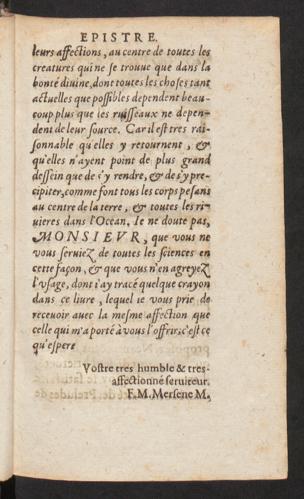 EPISTRE.
leurs affections, au centre de toutes les
creatures qui ne se trouue que dans la
bonté diuine, dont toutes les choses tant
actuelles que possibles dependent beau-
coup plus que les ruisseaux ne depen-
dent de leur source. Car il est tres rai-
sonnable qu'elles y retournent, & 
qu'elles n'ayent point de plus grand
dessein que de s'y rendre, & de s'y pre-
cipiter, comme font tous les corps pesans
au centre de la terre, & toutes les ri-
uieres dans l'Ocean. Ie ne doute pas,
MONSIEVR, que vous ne
vous seruiez de toutes les sciences en
cette façon, & que vous n'en agreyez
l'vsage, dont i'ay tracé quelque crayon
dans ce liure, lequel ie vous prie de
receuoir auec la mesme affection que
celle qui m'a porté à vous l'offrir, c'est ce
qu'espere
Vostre tres humble & tres-
affectionné seruiteur.
F. M. Mersene M.